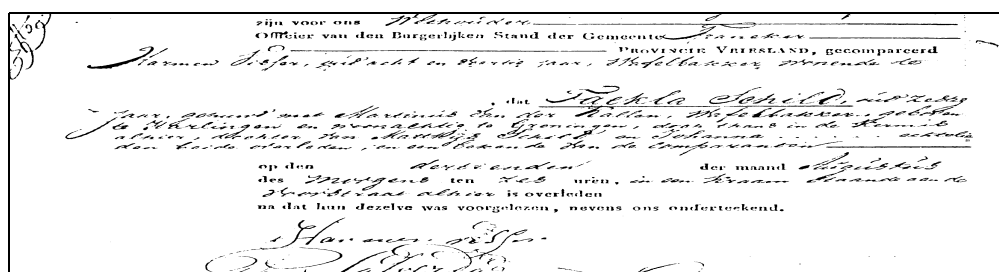 zijn voor ons Wethouder
Officier van den Burgerlijken Stand der Gemeente Franeker
PROVINCIE VRIESLAND, gecompareerd
Harmen Visser, oud acht en veertig jaar, Wafelbakker, wonende te
, dat Taekla Schild, oud zestig
jaar, gehuwd met Martinus van der Kallen, Wafelbakker, geboren
te Harlingen en woonachtig te Groningen, doch thans in de Kermis
alhier, dochter van Schild en Johanna echtelie
den beide overleden, en een bekende van de comparanten
op den dertienden der maand Augustus
des morgens ten zes uren, in een Kraam staande aan de
Voorstraat alhier is overleden
na dat hun dezelve was voorgelezen, nevens ons onderteekend.
Harmen Visser